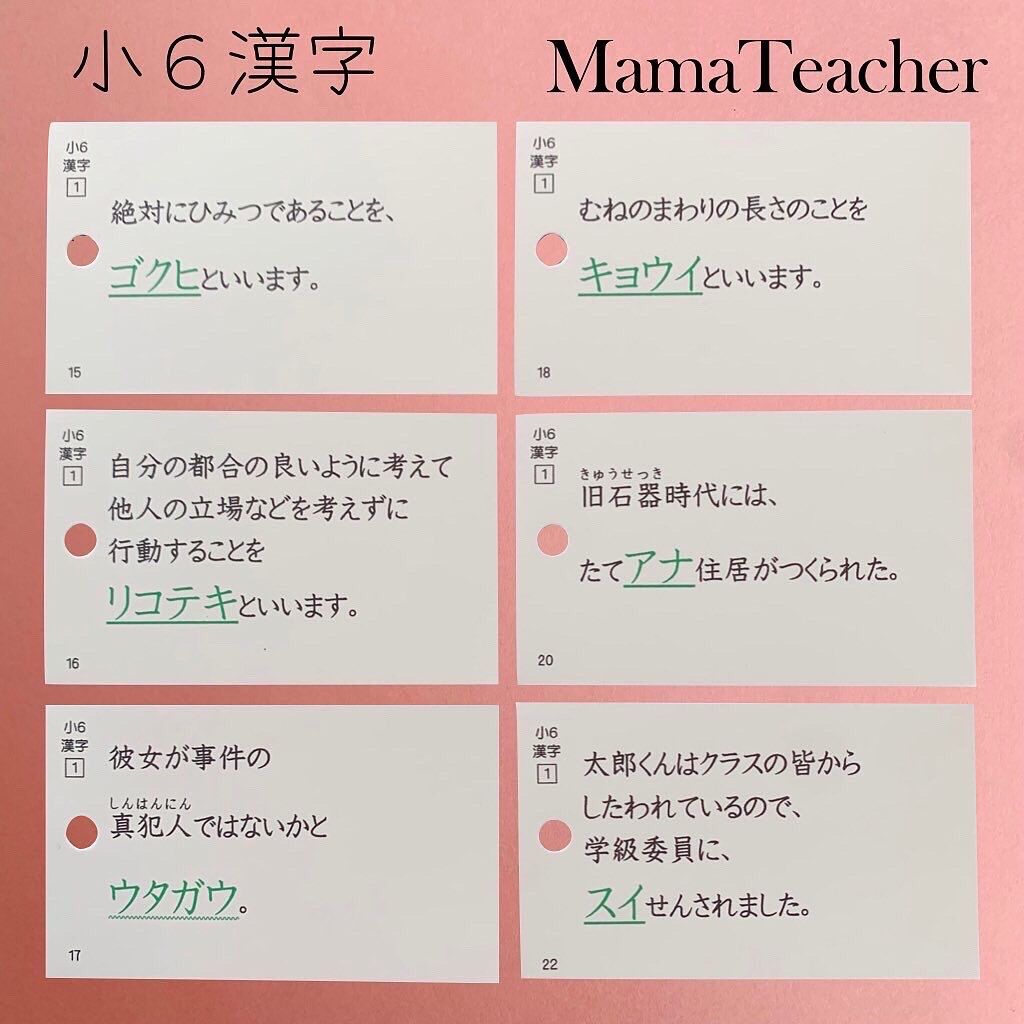 小6漢字
MamaTeacher
小6
漢字
1
絶対にひみつであることを、
ゴクヒといいます。
15
小6
漢字
1
むねのまわりの長さのことを
キョウイといいます。
18
小6
漢字
1
自分の都合の良いように考えて
他人の立場などを考えずに
行動することを
リコテキといいます。
16
小6
漢字
1
きゅうせっき
旧石器時代には、
たてアナ住居がつくられた。
20
小6
漢字
1
彼女が事件の
しんはんにん
真犯人ではないかと
ウタガウ。
17
小6
漢字
1
太郎くんはクラスの皆から
したわれているので、
学級委員に、
スイせんされました。
22